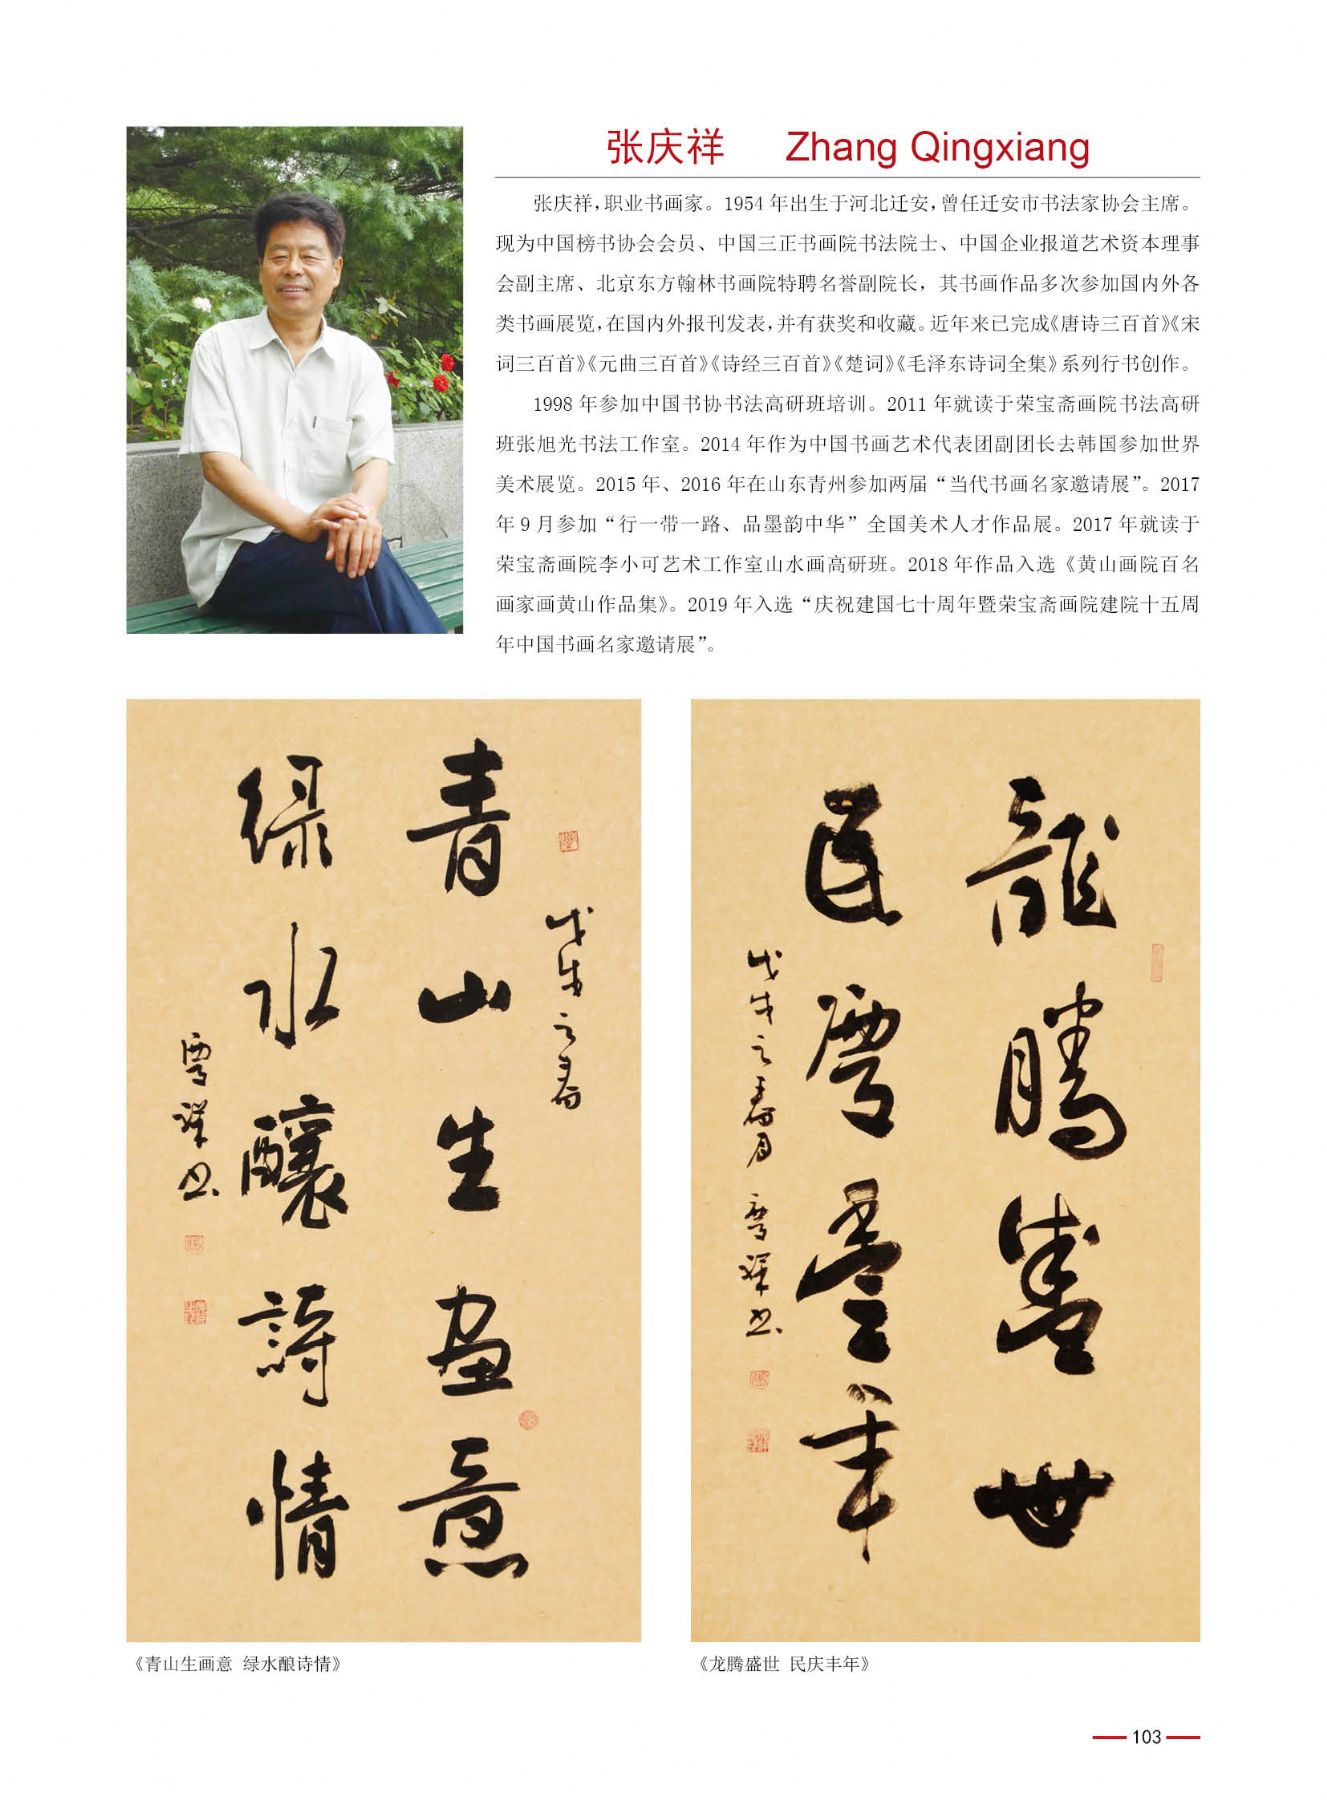 张庆祥 Zhang Qingxiang
张庆祥，职业书画家。1954 年出生于河北迁安，曾任迁安市书法家协会主席。
现为中国榜书协会会员、中国三正书画院书法院士、中国企业报道艺术资本理事
会副主席、北京东方翰林书画院特聘名誉副院长，其书画作品多次参加国内外各
类书画展览，在国内外报刊发表，并有获奖和收藏。近年来已完成《唐诗三百首》《宋
词三百首》《元曲三百首》《诗经三百首》《楚词》《毛泽东诗词全集》系列行书创作。
1998 年参加中国书协书法高研班培训。2011 年就读于荣宝斋画院书法高研
班张旭光书法工作室。2014 年作为中国书画艺术代表团副团长去韩国参加世界
美术展览。2015 年、2016 年在山东青州参加两届“当代书画名家邀请展”。2017
年 9 月参加“行一带一路、品墨韵中华”全国美术人才作品展。2017 年就读于
荣宝斋画院李小可艺术工作室山水画高研班。2018 年作品入选《黄山画院百名
画家画黄山作品集》。2019 年入选“庆祝建国七十周年暨荣宝斋画院建院十五周
年中国书画名家邀请展”。
戊戌之春
青山生画意
绿水釀詩情
慶祥书
《青山生画意 绿水酿诗情》
龍騰盛世
民慶豐年
戊戌之春月 慶祥书
《龙腾盛世 民庆丰年》
103